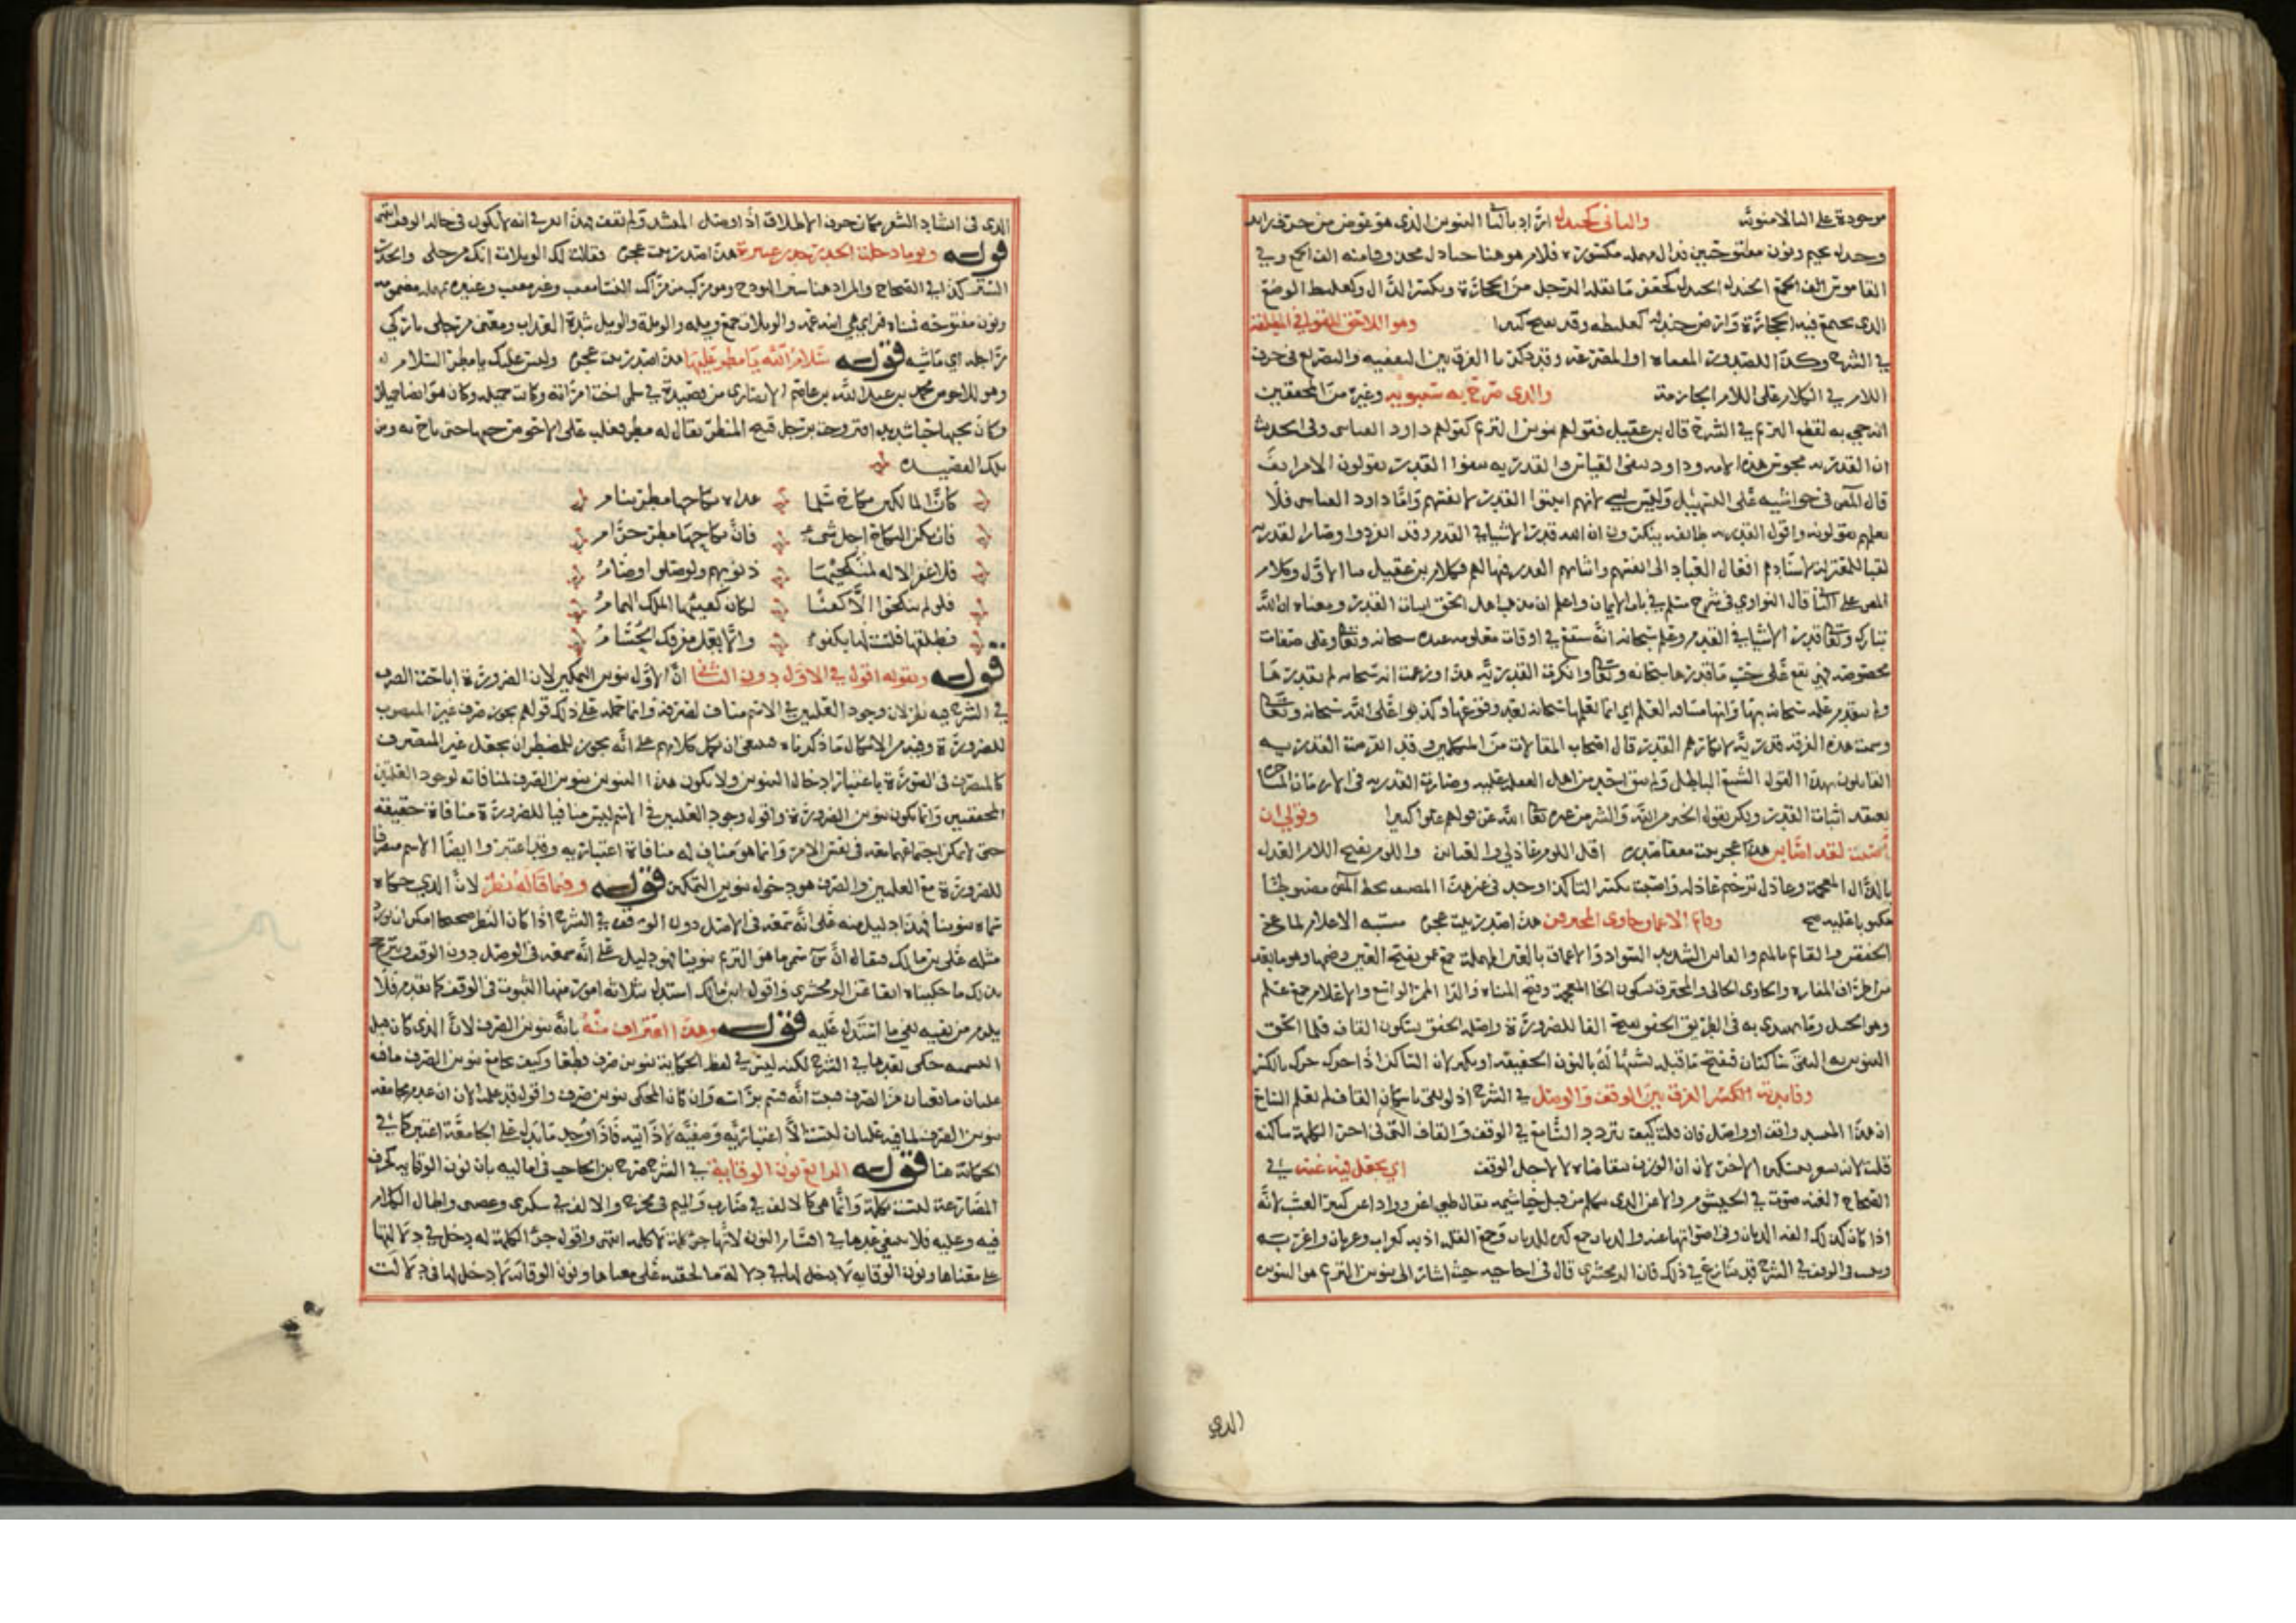 موجودة على الـ لا منونة والثاني كجندل اراد بالثاني التنوين الذي هو عوض من حرف زايد
وجندل بجيم ونون مفتوحتين فدال مهملة مكسورة فلام هو هنا جنادل محذوفا منه الف الجمع وفي
القاموس الجندل كجعفر ما يقله الرجل من الحجارة وبكسر الدال وكعلبط الموضع
الذي يجتمع فيه الحجارة وارض جندلة كعلبطة وقد يفتح كثيرا وهو اللاحق للقوافي المطلقة
في الشرح وكذا للفرق بين التقفية والتصريع في حرف
اللام في الكلام على اللام الجازمة والذي صرح به سيبويه وغيره من المحققين
انه جي به لقطع الترنم في الشرح قال بن عقيل فقولهم تنوين الترنم كقولهم داود القياسي وفي الحديث
ان القدرية مجوس هذه الامة وداود ينفي القياس والقدرية نفوا القدر يقولون الامر انف
قال المص في حواشيه على التسهيل وليس بشي لانهم اثبتوا القدر لانفسهم واما داود القياسي فلا
نعلم يقولونه واقول القدرية طائفة ينكرون ان الله قدر الاشياء في القدم وقد انقرضوا وصار القدرية
لقبا للمعتزلة لاسنادهم افعال العباد الى انفسهم واثباتهم القدر فيها لهم فكلام بن عقيل على الاول وكلام
المص على الثاني قال النواوي في شرح مسلم في باب الايمان واعلم ان مذهب اهل الحق اثبات القدر ومعناه ان الله
تبارك وتعالى قدر الاشياء في القدم وعلم سبحانه انها ستقع في اوقات معلومة عنده سبحانه وتعالى وعلى صفات
مخصوصة فهي تقع على حسب ما قدرها سبحانه وتعالى وانكرت القدرية هذا وزعمت انه سبحانه لم يقدرها
ولم يتقدم علمه سبحانه بها وانها مستانفة العلم اي انما يعلمها سبحانه بعد وقوعها وكذبوا على الله سبحانه وتعالى
وسميت هذه الفرقة قدرية لانكارهم القدر قال اصحاب المقالات من المتكلمين وقد انقرضت القدرية
القايلون بهذا القول الشنيع الباطل ولم يبق احد من اهل القبلة عليه وصارت القدرية في الازمان المتاخرة
تعتقد اثبات القدر ولكن يقول الخير من الله والشر من غيره تعالى الله عن قولهم علوا كبيرا وقولي ان
اصبت لقد اصابن هذا عجز بيت صدره اقلي اللوم عاذل والعتابن واللوم بفتح اللام العذل
بالذال المعجمة وعاذل ترخيم عاذلة واصبت بكسر التاء وجد في هذا المصنف بخط المص مضبوطا
مكتوبا عليه صح وقاتم الاعماق خاوي المخترقن هذا صدر بيت عجزه مشتبه الاعلام لماع
الخفقن والقاتم بالميم والقاف الشديد السواد والاعماق بالعين المهملة جمع عمق بفتح العين وضمها وهو ما بعد
من اطراف المفازة والخاوي الخالي والمخترق بسكون الخا المعجمة وفتح المثناة والرا الممر الواسع والاعلام جمع علم
وهو الجبل وما يهتدى به في الطريق الخفق بفتح الفا للضرورة واصله الخفق بسكون الفاء فلما الحق
التنوين به التقى ساكنان ففتح ما قبله تشبيها له بالنون الخفيفة او بكسر لان الساكن اذا حرك حرك بالكسر
وفائدته الفرق بين الوقف والوصل في الشرح اذ لو بقي باسكان القاف لم يعلم السامع
ان هذا المنشد واقف او واصل فان قلت كيف يتردد السامع في الوقف والقاف التي في اخر الكلمة ساكنة
قلت لانه الاخر لان الوزن يتقاضاه لا لاجل الوقف اي يجعل فيه غنة في
الصحاح الغنة صوت في الخيشوم والاغن الذي يتكلم من قبل خياشيمه يقال ظبي اغن وواد اغن كثير العشب لانه
اذا كان كذلك الفه الذبان وفي اصواتها غنة والذبان جمع كثير للذباب وجمع القلة اذبة كغراب وغربان واغربة
في الشرح قد تنازع في ذلك فان الزمخشري قال في احاجيه حيث اشار الى تنوين الترنم هو التنوين
الذي
الذي في انشاد الشعر مكان حرف الاطلاق اذا وصل المنشد ولم يقف فهذا في انه لا يكون في حالة الوقف انتهى
قوله ويوم دخلت الخدر خدر عنيزة هذا صدر بيت عجزه فقالت لك الويلات انك مرجلي والخدر
الستر كذا في الصحاح والمراد هنا ستر الهودج وهو مركب من مراكب النساء مقبب وغير مقبب وعنيزة بمهملة مضمومة
ونون مفتوحة فمثناة فزاي هي ابنة عمه والويلات جمع ويلة والويلة والويل شدة العذاب ومعنى مرجلي تاركي
راجلة اي ماشية قوله سلام الله يا مطر عليها هذا صدر بيت عجزه وليس عليك يا مطر السلام
وهو للاحوص محمد بن عبد الله بن عاصم الانصاري من قصيدة في سلمى اخت امراته وكانت جميلة وكان هو ايضا جميلا
وكان يحبها حبا شديدا فتزوجت برجل قبيح المنظر يقال له مطر فغلب على الاحوص حبها حتى باح به ومن
تلك القصيدة
كان المالكين نكاح سلمى غداة نكاحها مطر نيام
فان يكن النكاح احل شيء فان نكاحها مطر حرام
فلا غفر الاله لمنكحيها ذنوبهم ولو صلوا وصاموا
فلو لم ينكحوا الا كفيئا لكان كفيئها الملك الهمام
فطلقها فلست لها بكفوء والا يعل مفرقك الحسام
قوله وبقوله اقول في الاول دون الثاني ان الاول تنوين التمكين لان الضرورة اباحت الصرف
في الشرح فيه نظر لان وجود العلتين في الاسم مناف لصرفه وانما حمله على ذلك قولهم يجوز صرف غير المنصرف
للضرورة وفيه من الاشكال ما ذكرناه فينبغي ان يحمل كلامهم على انه يجوز للمضطر ان يجعل غير المنصرف
كالمنصرف في الصورة باعتبار ادخال التنوين ولا يكون هذا التنوين تنوين الصرف لمنافاته لوجود العلتين
المحققتين وانما يكون تنوين الضرورة واقول وجود العلتين في الاسم ليس منافيا للضرورة منافاة حقيقة
حتى لا يمكن اجتماعهما معه في نفس الامر وانما هو مناف له منافاة اعتبارية وقد اعتبروا ايضا الاسم منصرفا
للضرورة مع العلتين والصرف هو دخول تنوين التمكين قوله وفيما قاله نظر لان الذي حكاه
سماه تنوينا فهذا دليل منه على انه سمعه في الوصل دون الوقف في الشرح اذا كان النظر صحيحا امكن ان يورد
مثله على بن مالك فيقال ان س سمى ما هو الترنم تنوينا فهو دليل على انه سمعه في الوصل دون الوقف ويترجح
بذلك ما حكيناه انفا عن الزمخشري واقول ابن مالك استدل بثلاثة امور منها الثبوت في الوقف كما تقدم فلا
يلزم من نفيه نفي ما استدل عليه قوله وهذا اعتراف منه بانه تنوين الصرف لان الذي كان قبل
التسمية حكي بعدها في الشرح لكنه ليس في لفظ الحكاية تنوين صرف قطعا وكيف يجامع تنوين الصرف ما فيه
علتان مانعتان من الصرف فثبت انه قسم براسه وان كان المحكي تنوين صرف واقول قد علمت الان ان عدم مجامعة
تنوين الصرف لما فيه علتان ليست الا اعتبارية وضعية لا ذاتية فاذا وجد ما يدل على المجامعة اعتبر كما في
الحكاية هنا قوله الرابع نون الوقاية في الشرح صرح بن الحاجب في اماليه بان نون الوقاية كحرف
المضارعة ليست بكلمة وانما هي كالالف في ضارب والميم في مخرج والالف في سكرى وعصى واطال الكلام
فيه وعليه فلا ينبغي عدها في اقسام النون لانها جزء كلمة لا كلمة انتهى واقول جزء الكلمة له دخل في دلالتها
على معناها ونون الوقاية لا دخل لها في دلالة ما لحقته على معناها ونون الوقاية لا دخل لها في دلالت